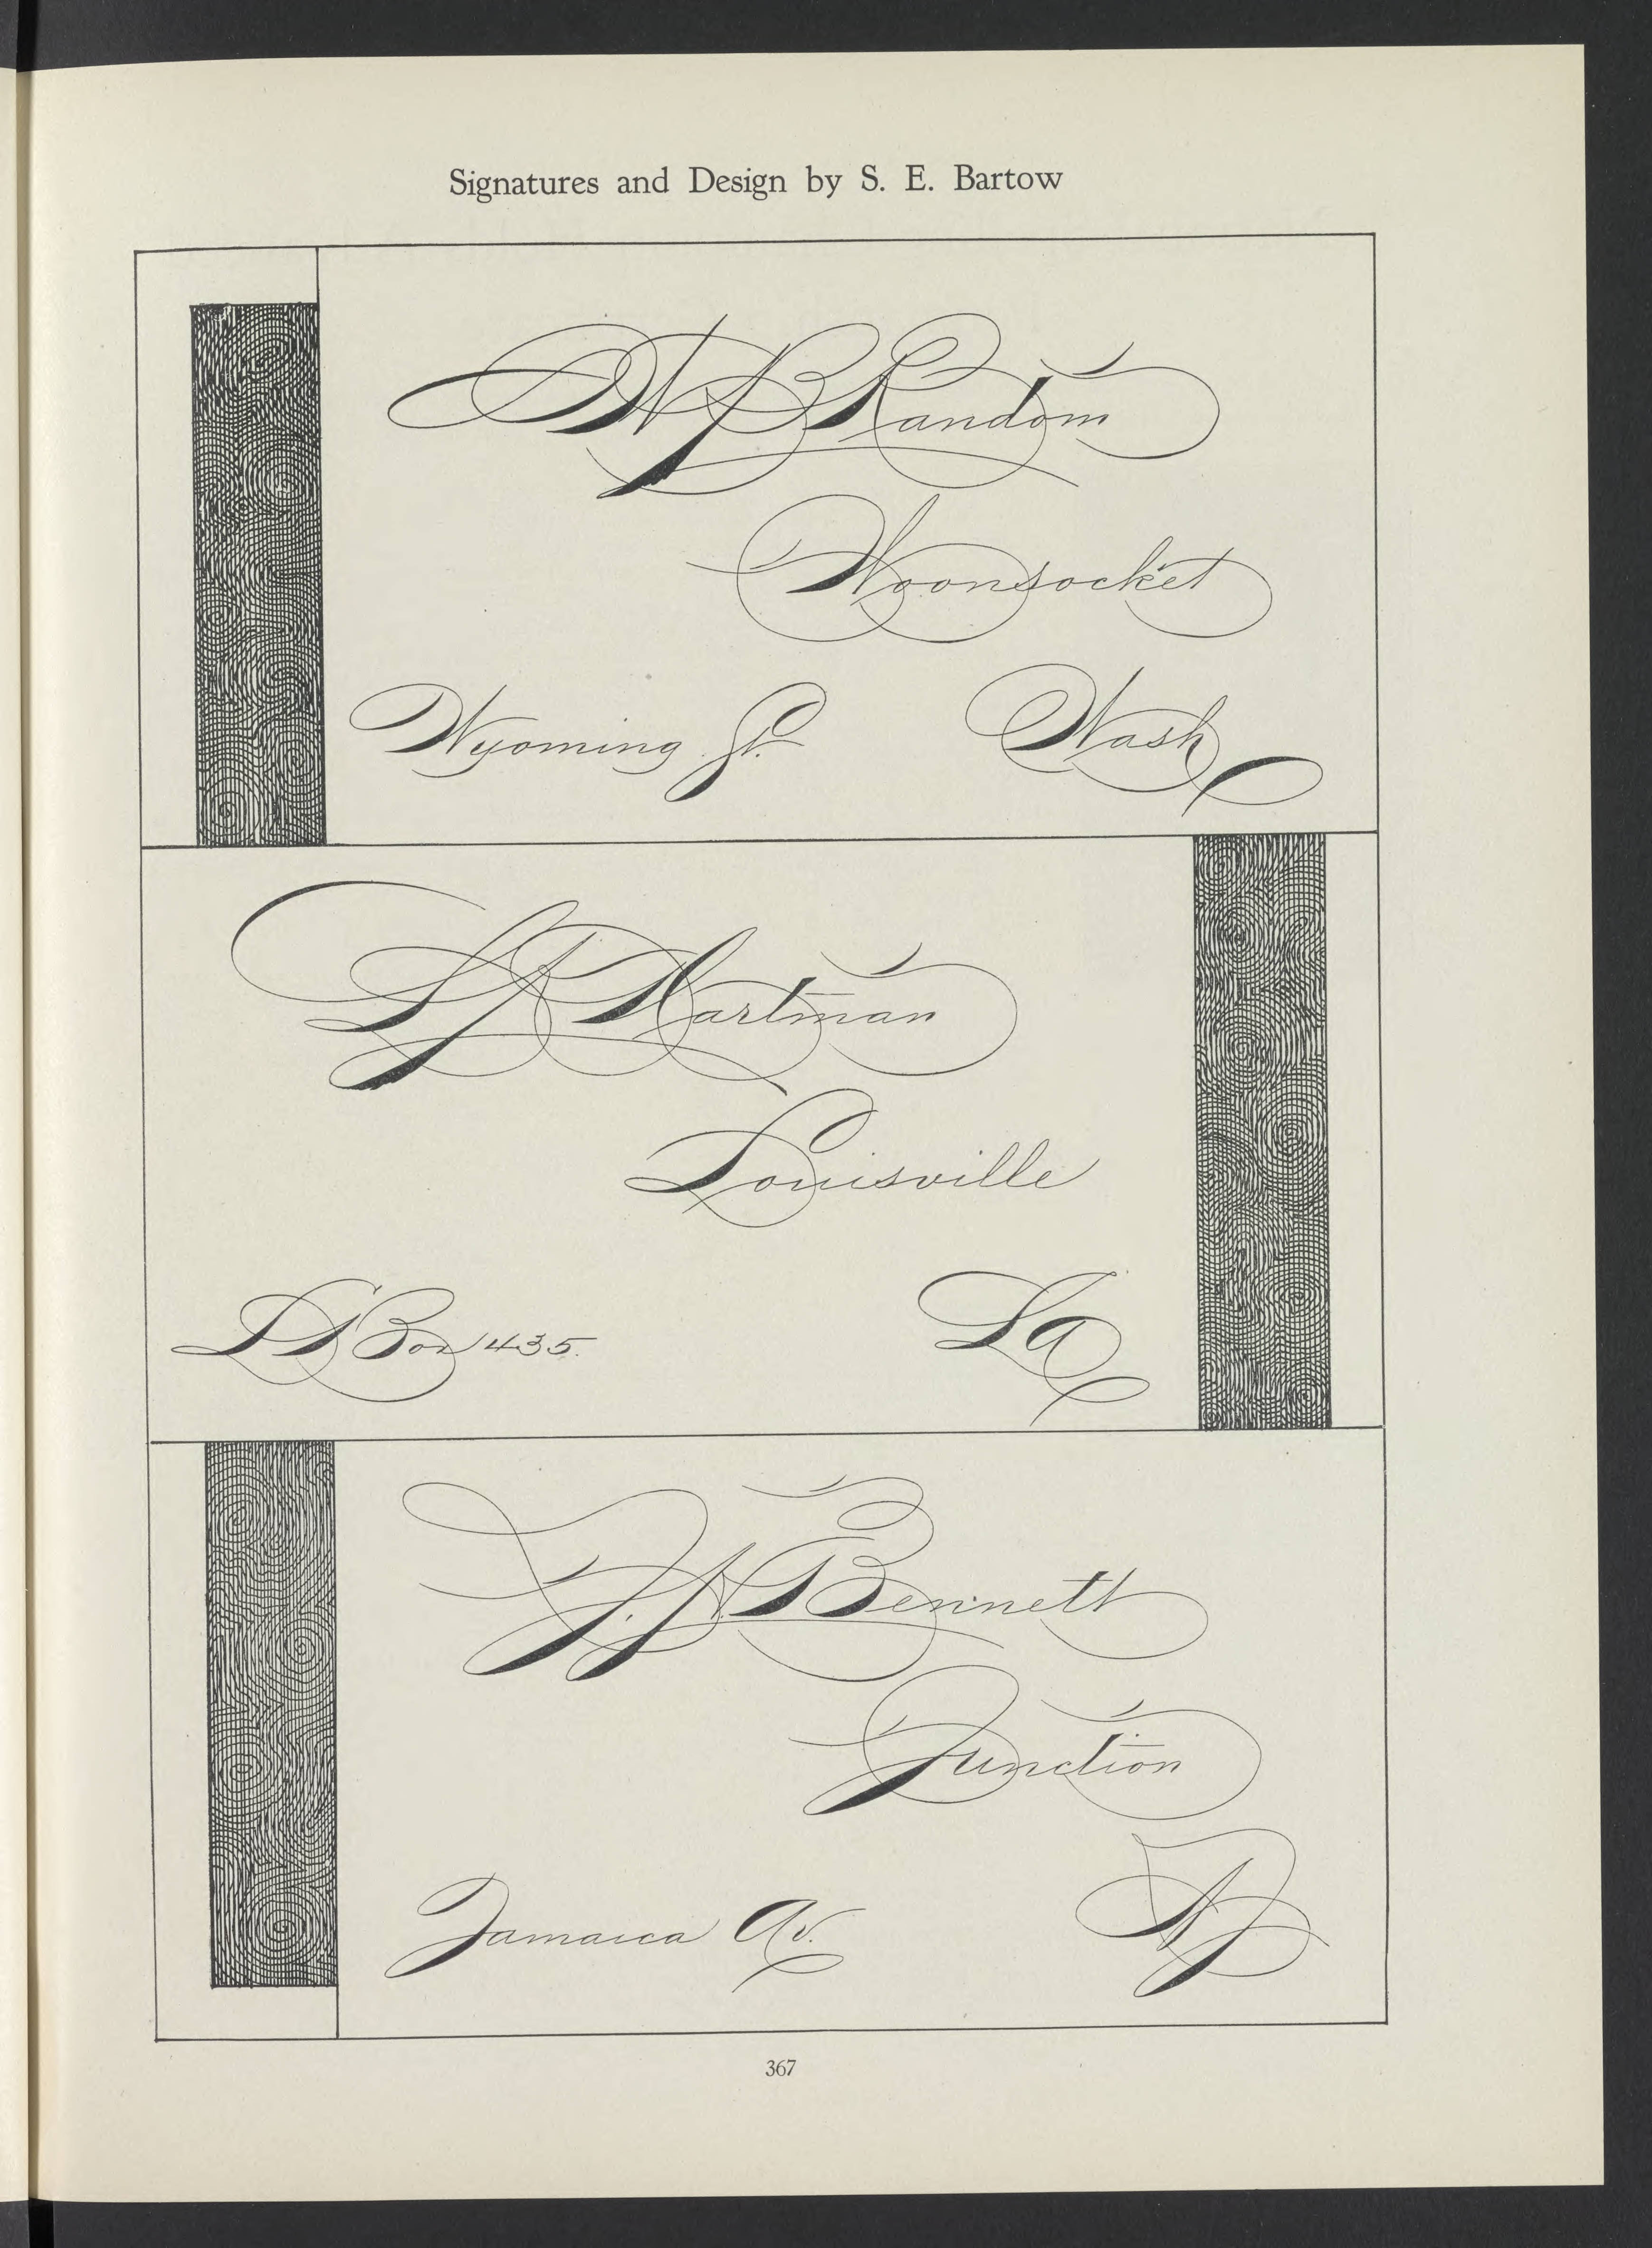 Signatures and Design by S. E. Bartow
W P Random
Woonsocket
Wyoming St. Wash
Hartman
Louisville
Box 435.
La
Bennett
Junction
Jamaica Av.
367